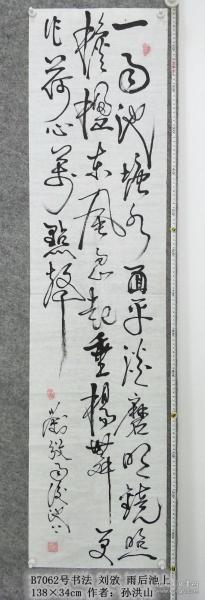 一雨池塘水面平淡磨明鏡照
檐楹东風忽起垂楊舞更
作荷心萬點聲
劉攽雨後池上
B7062号书法 刘攽 雨后池上
138×34cm 作者：孙洪山